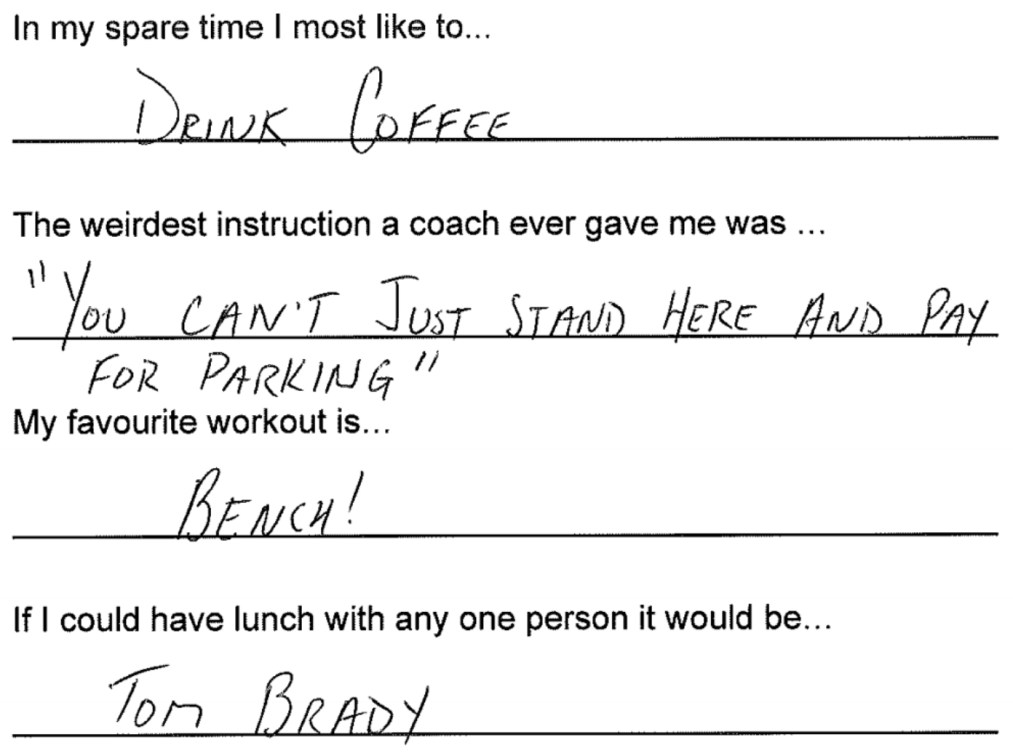 In my spare time I most like to...
DRINK COFFEE
The weirdest instruction a coach ever gave me was ...
"YOU CAN'T JUST STAND HERE AND PAY
FOR PARKING"
My favourite workout is...
BENCH!
If I could have lunch with any one person it would be...
TOM BRADY